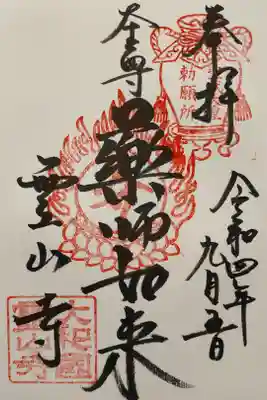 奉拝
令和四年
九月五日
勅願所
本尊
藥師如来
霊山寺
大和國
霊山寺